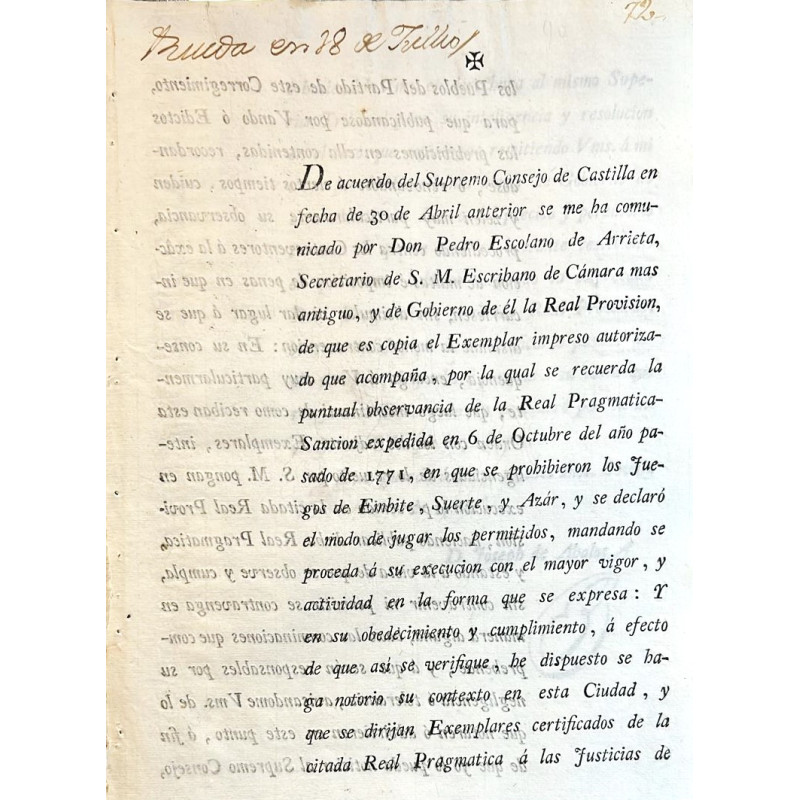 72
Rueda en 18 de Julio
✠
De acuerdo del Supremo Consejo de Castilla en
fecha de 30 de Abril anterior se me ha comu-
nicado por Don Pedro Escolano de Arrieta,
Secretario de S. M. Escribano de Cámara mas
antiguo, y de Gobierno de él la Real Provision,
de que es copia el Exemplar impreso autoriza-
do que acompaña, por la qual se recuerda la
puntual observancia de la Real Pragmatica-
Sancion expedida en 6 de Octubre del año pa-
sado de 1771, en que se prohibieron los Jue-
gos de Embite, Suerte, y Azár, y se declaró
el modo de jugar los permitidos, mandando se
proceda á su execucion con el mayor vigor, y
actividad en la forma que se expresa: Y
en su obedecimiento y cumplimiento, á efecto
de que asi se verifique, he dispuesto se ha-
ga notorio su contexto en esta Ciudad, y
que se dirijan Exemplares certificados de la
citada Real Pragmatica á las Justicias de